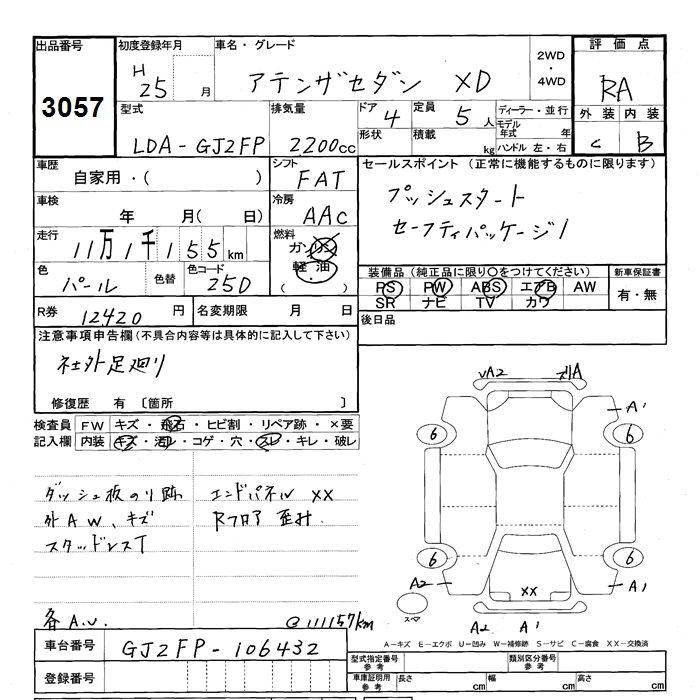 出品番号 初度登録年月 車名・グレード 2WD ・ 4WD 評価点
3057 H 25 月 アテンザセダン XD RA
外装 内装
C B
型式 排気量 ドア 4 定員 5人 ディーラー・並行
LDA-GJ2FP 2200cc 形状 積載 kg モデル年式 年
ハンドル 左・右
車歴 シフト セールスポイント (正常に機能するものに限ります)
自家用・( ) FAT
車検 冷房 プッシュスタート
年 月( 日) AAC セーフティパッケージ1
走行 燃料
11万1千155km ガソリン
軽油
( )
色 色替 色コード
パール 25D
装備品 (純正品に限り○をつけてください) 新車保証書
PS PW ABS エアB AW 有・無
SR ナビ TV カワ
R券 12420円 名変期限 月 日 後日品
注意事項申告欄(不具合内容等は具体的に記入して下さい)
社外足廻り
修復歴 有 〔箇所 〕
検査員 FW キズ・飛石・ヒビ割・リペア跡・×要
記入欄 内装 キズ・汚レ・コゲ・穴・スレ・キレ・破レ
ダッシュ板のり跡 エンドパネル XX
外AW、キズ Rフロア 歪ミ
スタッドレスT
各A.U. @111157km
A2 A
A1
6 6
6 6
A2 A1
XX
スペア
A2 A1
A-キズ E-エクボ U-凹み W-補修跡 S-サビ C-腐食 XX-交換済
車台番号 GJ2FP-106432
登録番号
型式指定番号 参考 類別区分番号 参考
車庫証明用 参考 長さ cm 幅 cm 高さ cm